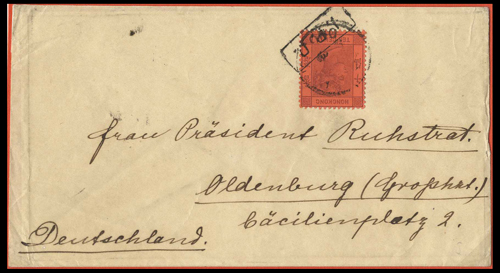 HONG KONG
Frau Präsident Ruhstrat.
Oldenburg (Großhzt.)
Cäcilienplatz 2.
Deutschland.